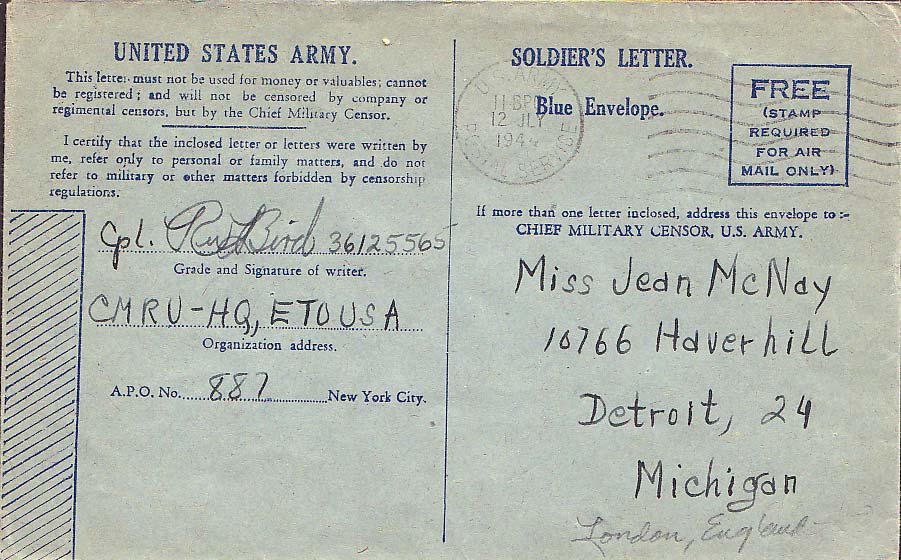 UNITED STATES ARMY.
This letter must not be used for money or valuables; cannot
be registered; and will not be censored by company or
regimental censors, but by the Chief Military Censor.
I certify that the inclosed letter or letters were written by
me, refer only to personal or family matters, and do not
refer to military or other matters forbidden by censorship
regulations.
Cpl. Bird 36125565
Grade and Signature of writer.
CMRU-HQ, ETOUSA
Organization address.
A.P.O. No. 887 New York City.
SOLDIER'S LETTER.
Blue Envelope.
U.S. ARMY
12 JLY
1944
POSTAL SERVICE
FREE
(STAMP
REQUIRED
FOR AIR
MAIL ONLY)
If more than one letter inclosed, address this envelope to:-
CHIEF MILITARY CENSOR, U.S. ARMY.
Miss Jean McNay
10766 Haverhill
Detroit, 24
Michigan
London, England